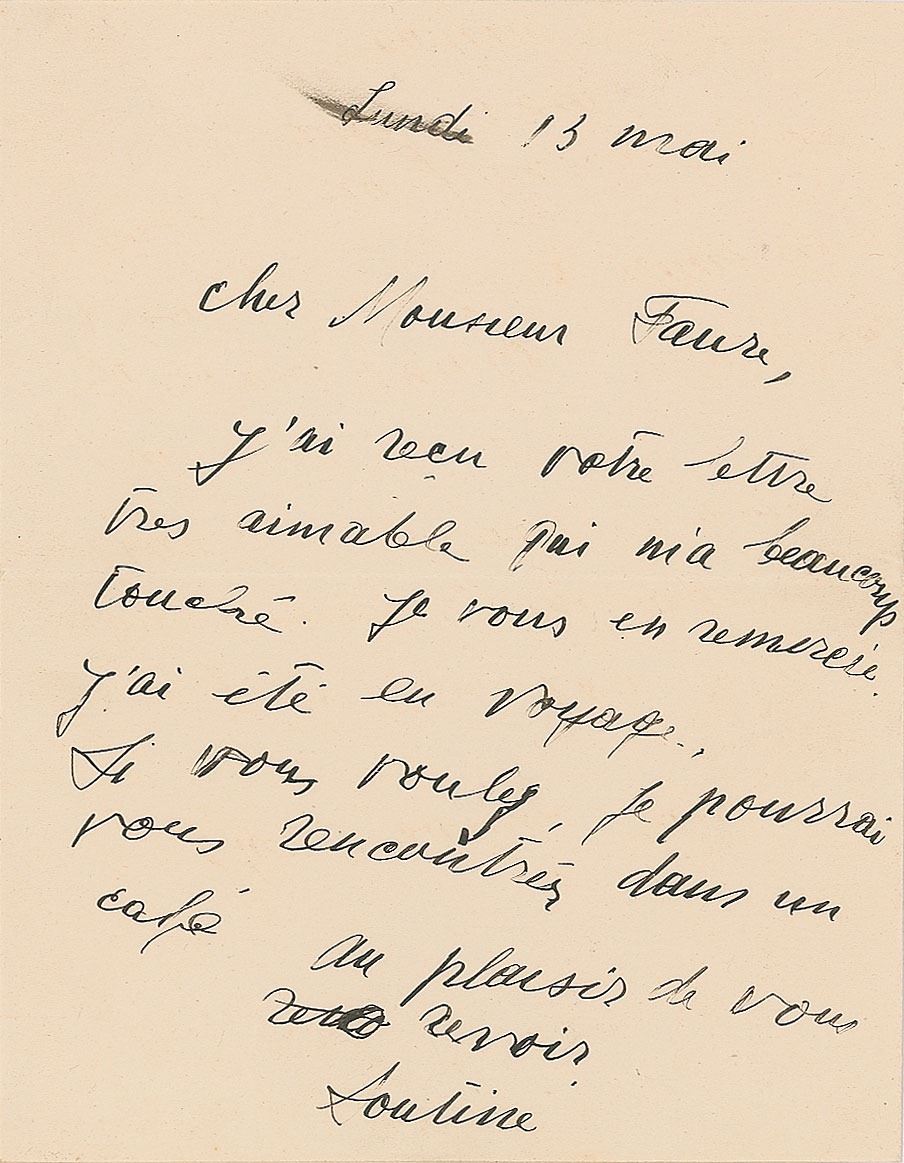 Lundi 13 mai
cher Monsieur Faure,
J'ai reçu votre lettre
tres aimable qui m'a beaucoup
touché. Je vous en remercie.
J'ai été en voyage.
Si vous voulez, je pourrai
vous rencontrér dans un
café
au plaisir de vous
revoir
Soutine